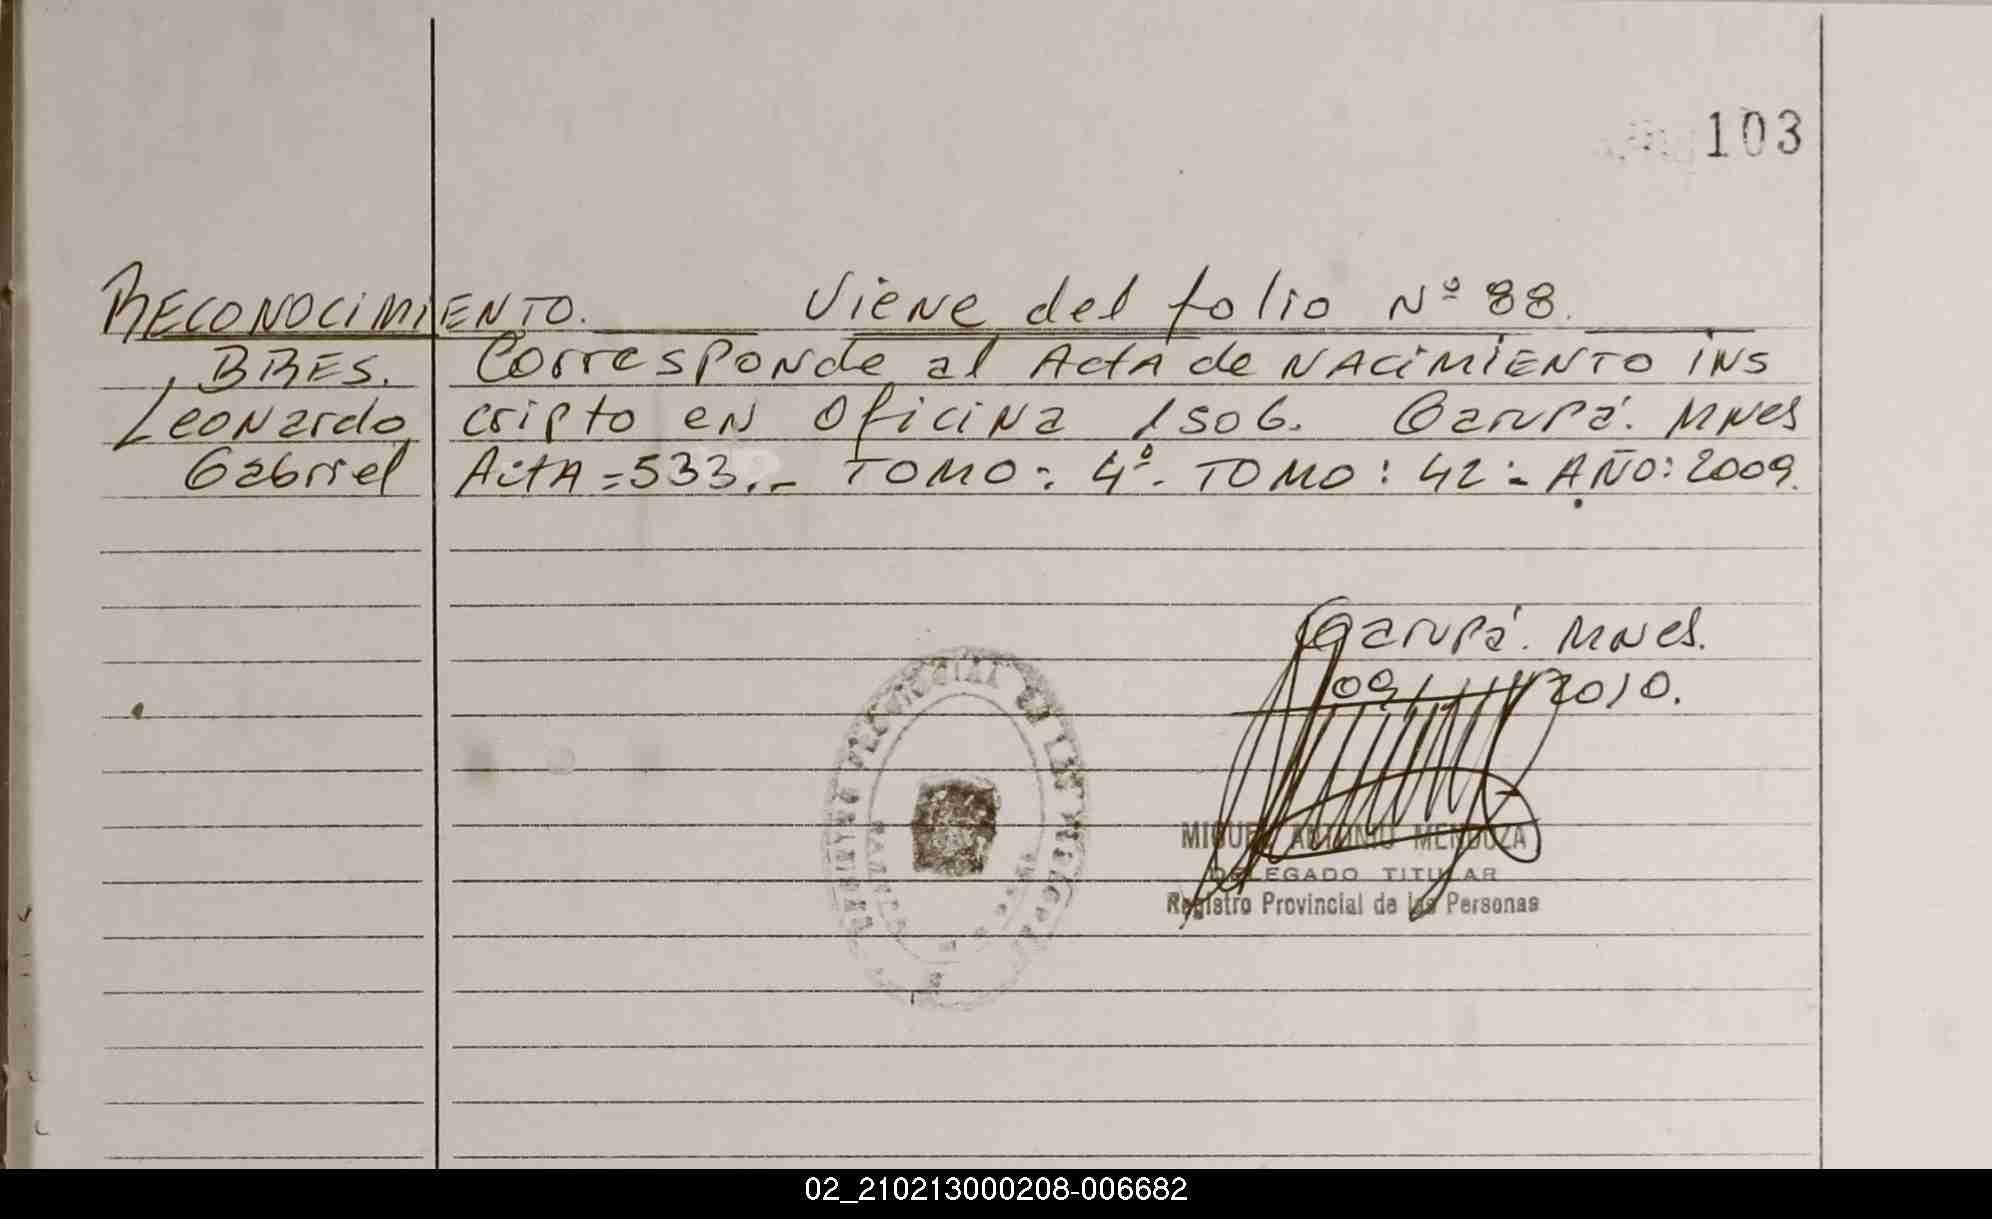 103
RECONOCIMIENTO. Viene del folio Nº 88.
BRES. Corresponde al Acta de NACIMIENTO INS
Leonardo cripto en Oficina 1506. Garupá. MNES
Gabriel ActA = 533.- TOMO: 4º. TOMO: 42 - AÑO: 2009.
Garupá. MNES.
2010.
MIGUEL ANTONIO MENDOZA
DELEGADO TITULAR
Registro Provincial de las Personas
02_210213000208-006682